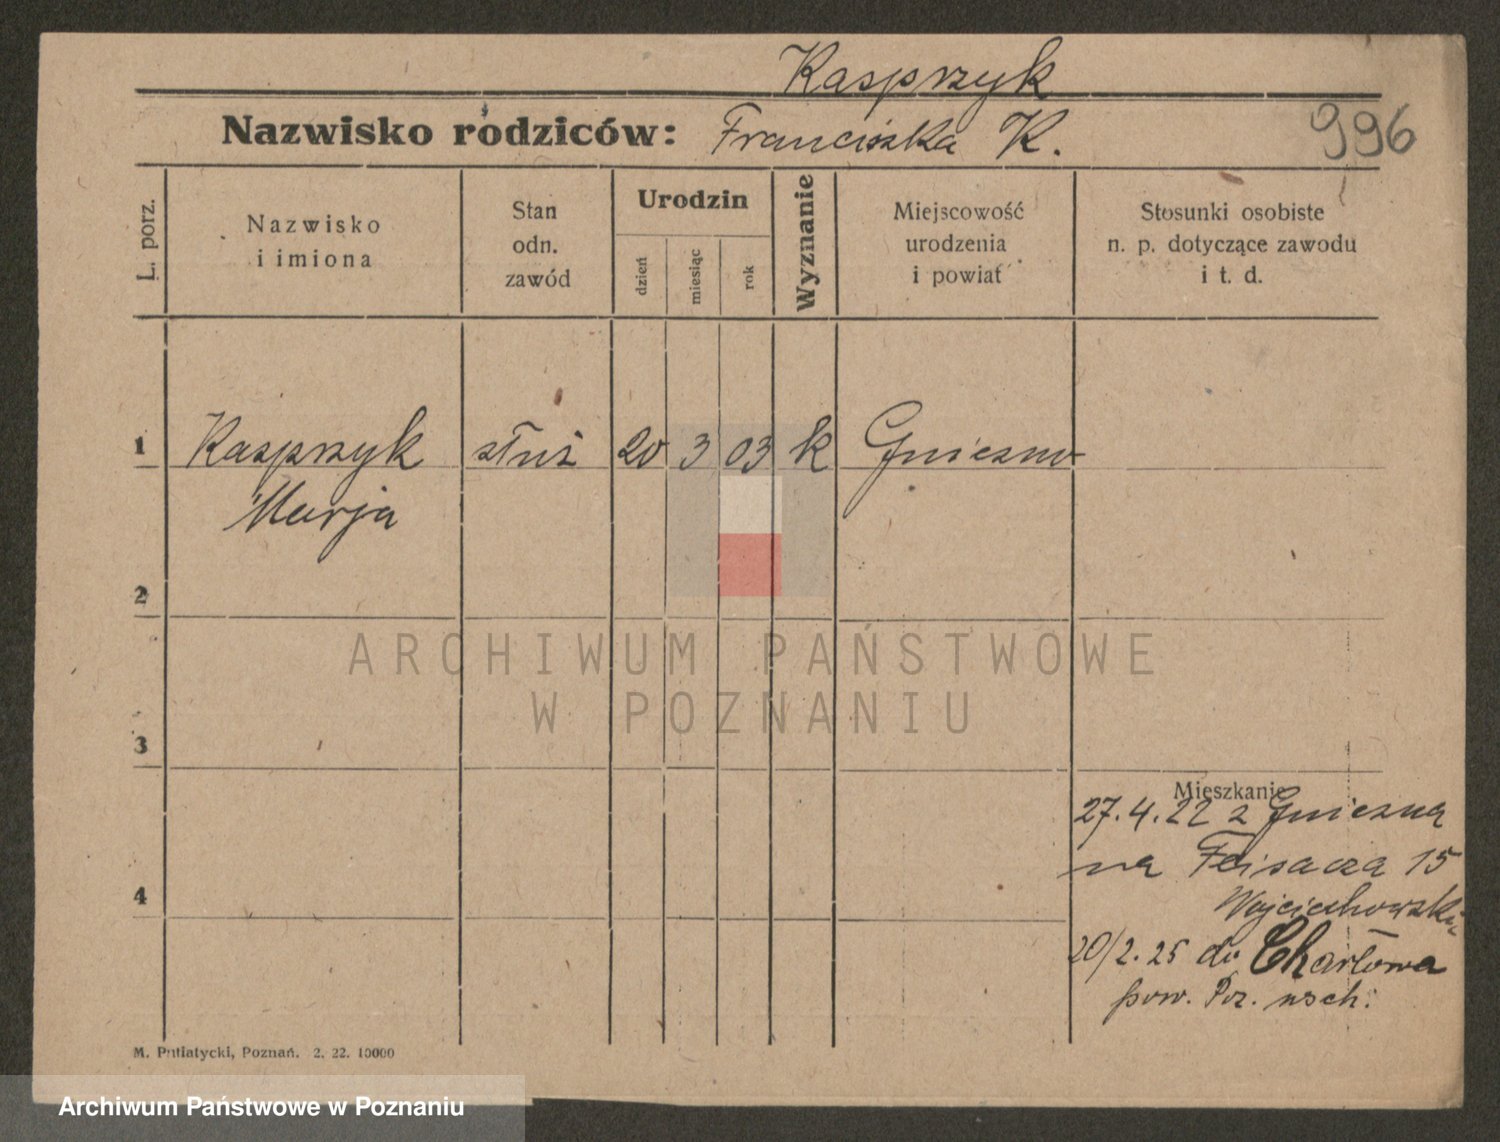 Kasprzyk
Nazwisko rodziców: Franciszka K.
996
L. porz.
Nazwisko i imiona
Stan odn. zawód
Urodzin
dzień
miesiąc
rok
Wyznanie
Miejscowość urodzenia i powiat
Stosunki osobiste n. p. dotyczące zawodu i t. d.
1 Kasprzyk służ 20 3 03 k Gniezno
Marja
2
3
4
Mieszkanie
27.4.22 z Gniezna
na 15
Wojciechowski
20/2.25 do Chartowa
pow. Poz. wsch.
M. Putiatycki, Poznań. 2. 22. 10000
ARCHIWUM PAŃSTWOWE
W POZNANIU
Archiwum Państwowe w Poznaniu